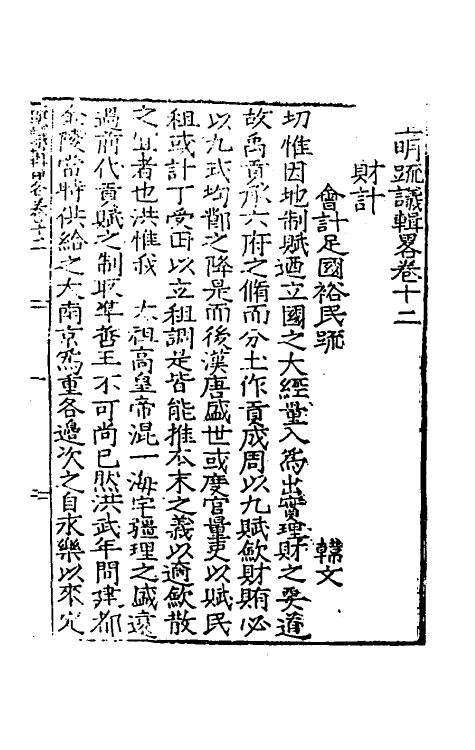 皇明疏議輯畧卷十二
財計
會計足國裕民疏
韓文
切惟因地制賦迺立國之大經量入為出實理財之要道
故禹貢承六府之脩而分土作貢成周以九賦斂財賄必
以九式均節之降是而後漢唐盛世或度官量吏以賦民
租或計丁受田以立租調是皆能推本末之義以適斂散
之宜者也洪惟我 太祖高皇帝混一海宇疆理之盛遠
過前代貢賦之制取準哲王不可尚已然洪武年間建都
金陵當時供給之大南京為重各邊次之自永樂以來定
疏議輯畧卷十二
一